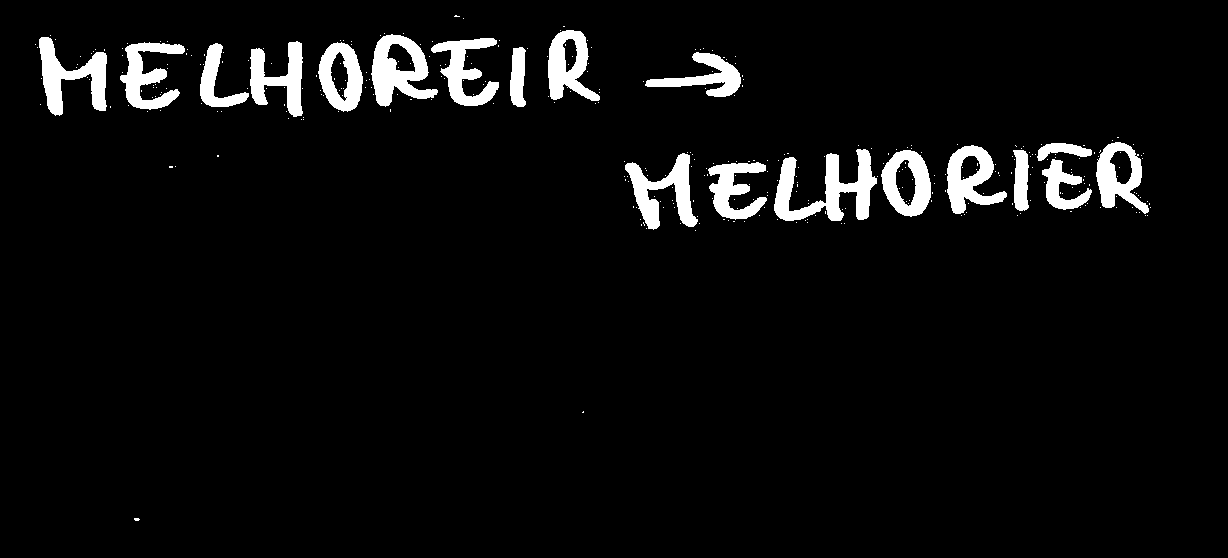 MELHOREIR →
MELHORIER